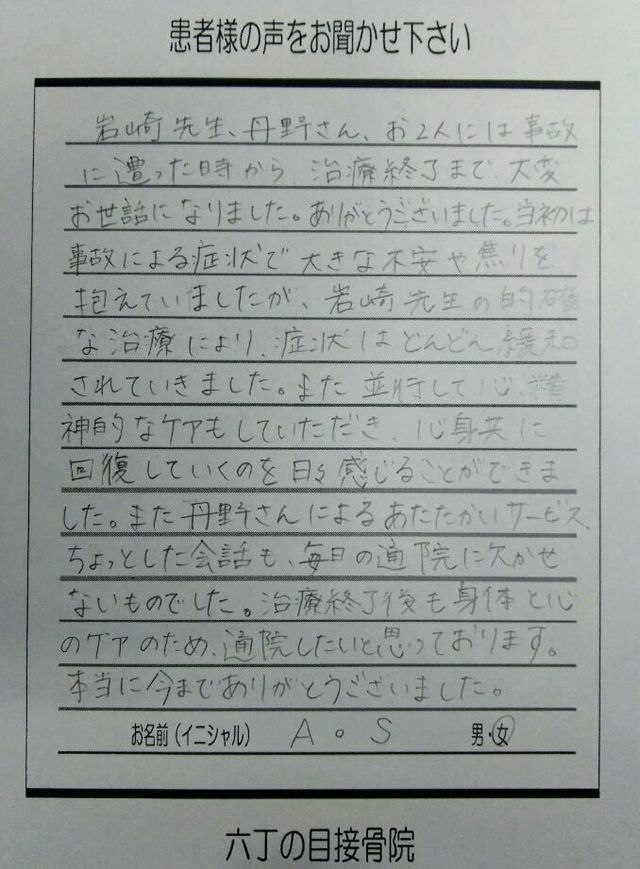 患者様の声をお聞かせ下さい
岩崎先生、丹野さん、お2人には事故
に遭った時から、治療終了まで、大変
お世話になりました。ありがとうございました。当初は
事故による症状で大きな不安や焦りを
抱えていましたが、岩崎先生の的確
な治療により、症状はどんどん緩和
されていきました。また並行して心、精
神的なケアもしていただき、心身共に
回復していくのを日々感じることができま
した。また丹野さんによるあたたかいサービス、
ちょっとした会話も、毎日の通院に欠かせ
ないものでした。治療終了後も身体と心
のケアのため、通院したいと思っております。
本当に今までありがとうございました。
お名前(イニシャル) A。S 男・女
六丁の目接骨院